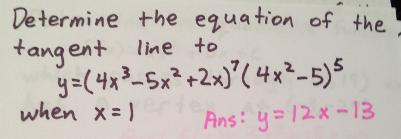 Determine the equation of the
tangent line to
y=(4x³-5x²+2x)⁷(4x²-5)⁵
when x=1 Ans: y=12x-13